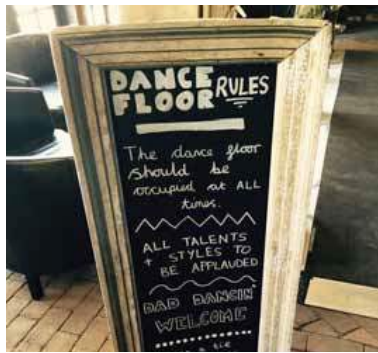 DANCE
FLOOR RULES
The dance floor
should be
occupied at ALL
times.
ALL TALENTS
+ STYLES TO
BE APPLAUDED
DAD DANCIN'
WELCOME
tie